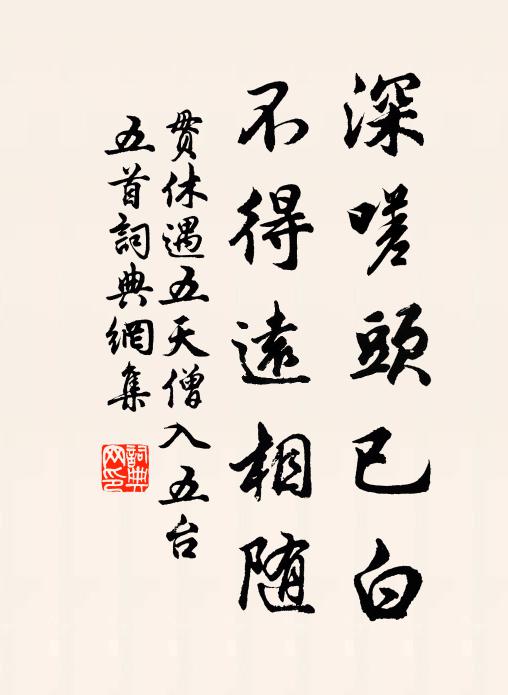 深嗟頭已白
不得遠相随
貫休遇五天僧入五台
五首詞典網集
詞典网印